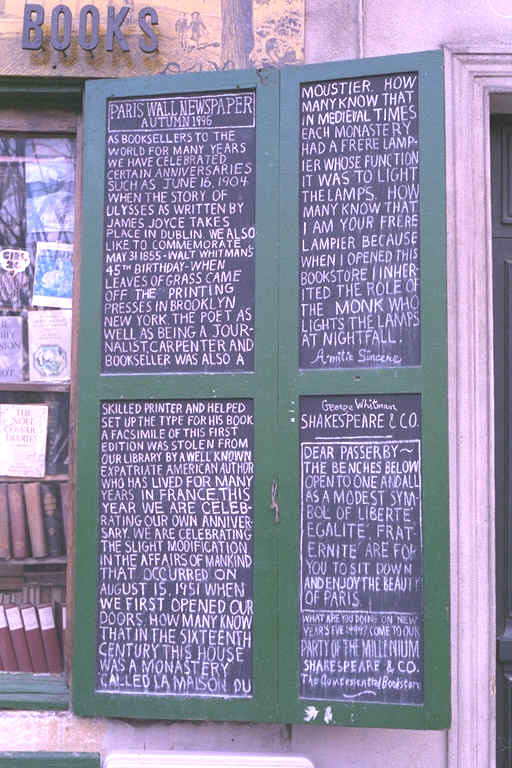 BOOKS
PARIS WALL NEWSPAPER
AUTUMN 1996
AS BOOKSELLERS TO THE
WORLD FOR MANY YEARS
WE HAVE CELEBRATED
CERTAIN ANNIVERSARIES
SUCH AS JUNE 16, 1904
WHEN THE STORY OF
ULYSSES AS WRITTEN BY
JAMES JOYCE TAKES
PLACE IN DUBLIN. WE ALSO
LIKE TO COMMEMORATE
MAY 31 1855 - WALT WHITMAN'S
45TH BIRTHDAY - WHEN
LEAVES OF GRASS CAME
OFF THE PRINTING
PRESSES IN BROOKLYN
NEW YORK THE POET AS
WELL AS BEING A JOUR-
NALIST CARPENTER AND
BOOKSELLER WAS ALSO A
SKILLED PRINTER AND HELPED
SET UP THE TYPE FOR HIS BOOK
A FACSIMILE OF THIS FIRST
EDITION WAS STOLEN FROM
OUR LIBRARY BY A WELL KNOWN
EXPATRIATE AMERICAN AUTHOR
WHO HAS LIVED FOR MANY
YEARS IN FRANCE THIS
YEAR WE ARE CELEB-
RATING OUR OWN ANNIVER-
SARY. WE ARE CELEBRATING
THE SLIGHT MODIFICATION
IN THE AFFAIRS OF MANKIND
THAT OCCURRED ON
AUGUST 15, 1951 WHEN
WE FIRST OPENED OUR
DOORS. HOW MANY KNOW
THAT IN THE SIXTEENTH
CENTURY THIS HOUSE
WAS A MONASTERY
CALLED LA MAISON DU
MOUSTIER. HOW
MANY KNOW THAT
IN MEDIEVAL TIMES
EACH MONASTERY
HAD A FRERE LAMP-
IER WHOSE FUNCTION
IT WAS TO LIGHT
THE LAMPS. HOW
MANY KNOW THAT
I AM YOUR FRERE
LAMPIER BECAUSE
WHEN I OPENED THIS
BOOKSTORE I INHER-
ITED THE ROLE OF
THE MONK WHO
LIGHTS THE LAMPS
AT NIGHTFALL.
Amitié Sincere
George Whitman
SHAKESPEARE & CO.
DEAR PASSERBY~
THE BENCHES BELOW
OPEN TO ONE AND ALL
AS A MODEST SYM-
BOL OF LIBERTÉ
EGALITÉ FRAT-
ERNITÉ ARE FOR
YOU TO SIT DOWN
AND ENJOY THE BEAUTY
OF PARIS
WHAT ARE YOU DOING ON NEW
YEAR'S EVE 1999? COME TO OUR
PARTY OF THE MILLENIUM
SHAKESPEARE & CO.
The Quintessential Bookstore